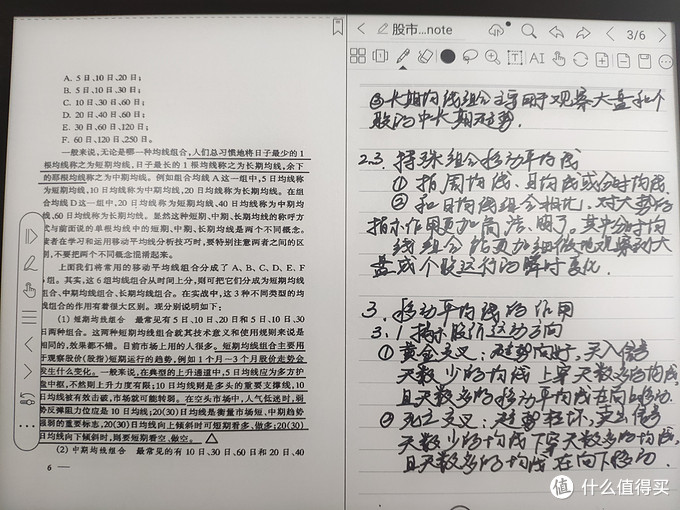 A. 5日、10日、20日；
B. 5日、10日、30日；
C. 10日、30日、60日；
D. 20日、40日、60日；
E. 30日、60日、120日；
F. 60日、120日、250日。
一般来说，无论是哪一种均线组合，人们总习惯地将日子最少的1
根均线称之为短期均线，日子最长的1根均线称之为长期均线，余下
的那根均线称之为中期均线。例如组合均线A这一组中，5日均线称
为短期均线，10日均线称为中期均线，20日均线称为长期均线。在组
合均线D这一组中，20日均线称为短期均线，40日均线称为中期均
线，60日均线称为长期均线。显然这种短期、中期、长期均线的称呼方
式与前面说的单根均线中的短期、中期、长期均线是两个不同概念。
读者在学习和运用移动平均线分析技巧时，要特别注意两者之间的区
别，不要把两个不同概念混淆起来。
上面我们将常用的移动平均线组合分成了A、B、C、D、E、F
组。其实，这6组均线组合从时间上分，则可把它们分成为短期均线
组合、中期均线组合、长期均线组合。在实战中，这3种不同类型的均
线组合的作用有着很大区别。现分别说明如下：
(1) 短期均线组合 最常见有5日、10日、20日和5日、10日、30
日两种组合。这两种短期均线组合就其技术意义和使用规则来说是
相同的，效果都不错。目前市场上用的人很多。短期均线组合主要用
于观察股价(股指)短期运行的趋势，例如1个月—3个月股价走势会
发生什么变化。一般来说，在典型的上升通道中，5日均线应为多方护
盘中枢，不然则上升力度有限；10日均线则是多头的重要支撑线，10
日均线被有效击破，市场就可能转弱。在空头市场中，人气低迷时，弱
势反弹阻力位应是10日均线；20(30)日均线是衡量市场短、中期趋势
强弱的重要标志，20(30)日均线向上倾斜时可短期看多、做多；20(30)
日均线向下倾斜时，则要短期看空、做空。
(2) 中期均线组合 最常见的有10日、30日、60日和20日、40
6
股市...note
3/6
③长期均线组合主要用于观察大盘和个
股的中长期趋势.
2.3. 特殊组合移动平均线
① 指周均线、月均线或分时均线.
② 和日均线组合相比，对大势的
指示作用更加简洁、明了。其中分时均
线组合能更加细微地观察到大
盘或个股运行的瞬时变化.
3. 移动平均线的作用
3.1 揭示股价运动方向
①黄金交叉：趋势向好，买入信号
天数少的均线上穿天数多的均线,
且天数多的移动平均线在向上移动.
②死亡交叉：趋势转坏，卖出信号
天数少的均线下穿天数多的均线,
且天数多的均线在向下移动.
值 什么值得买